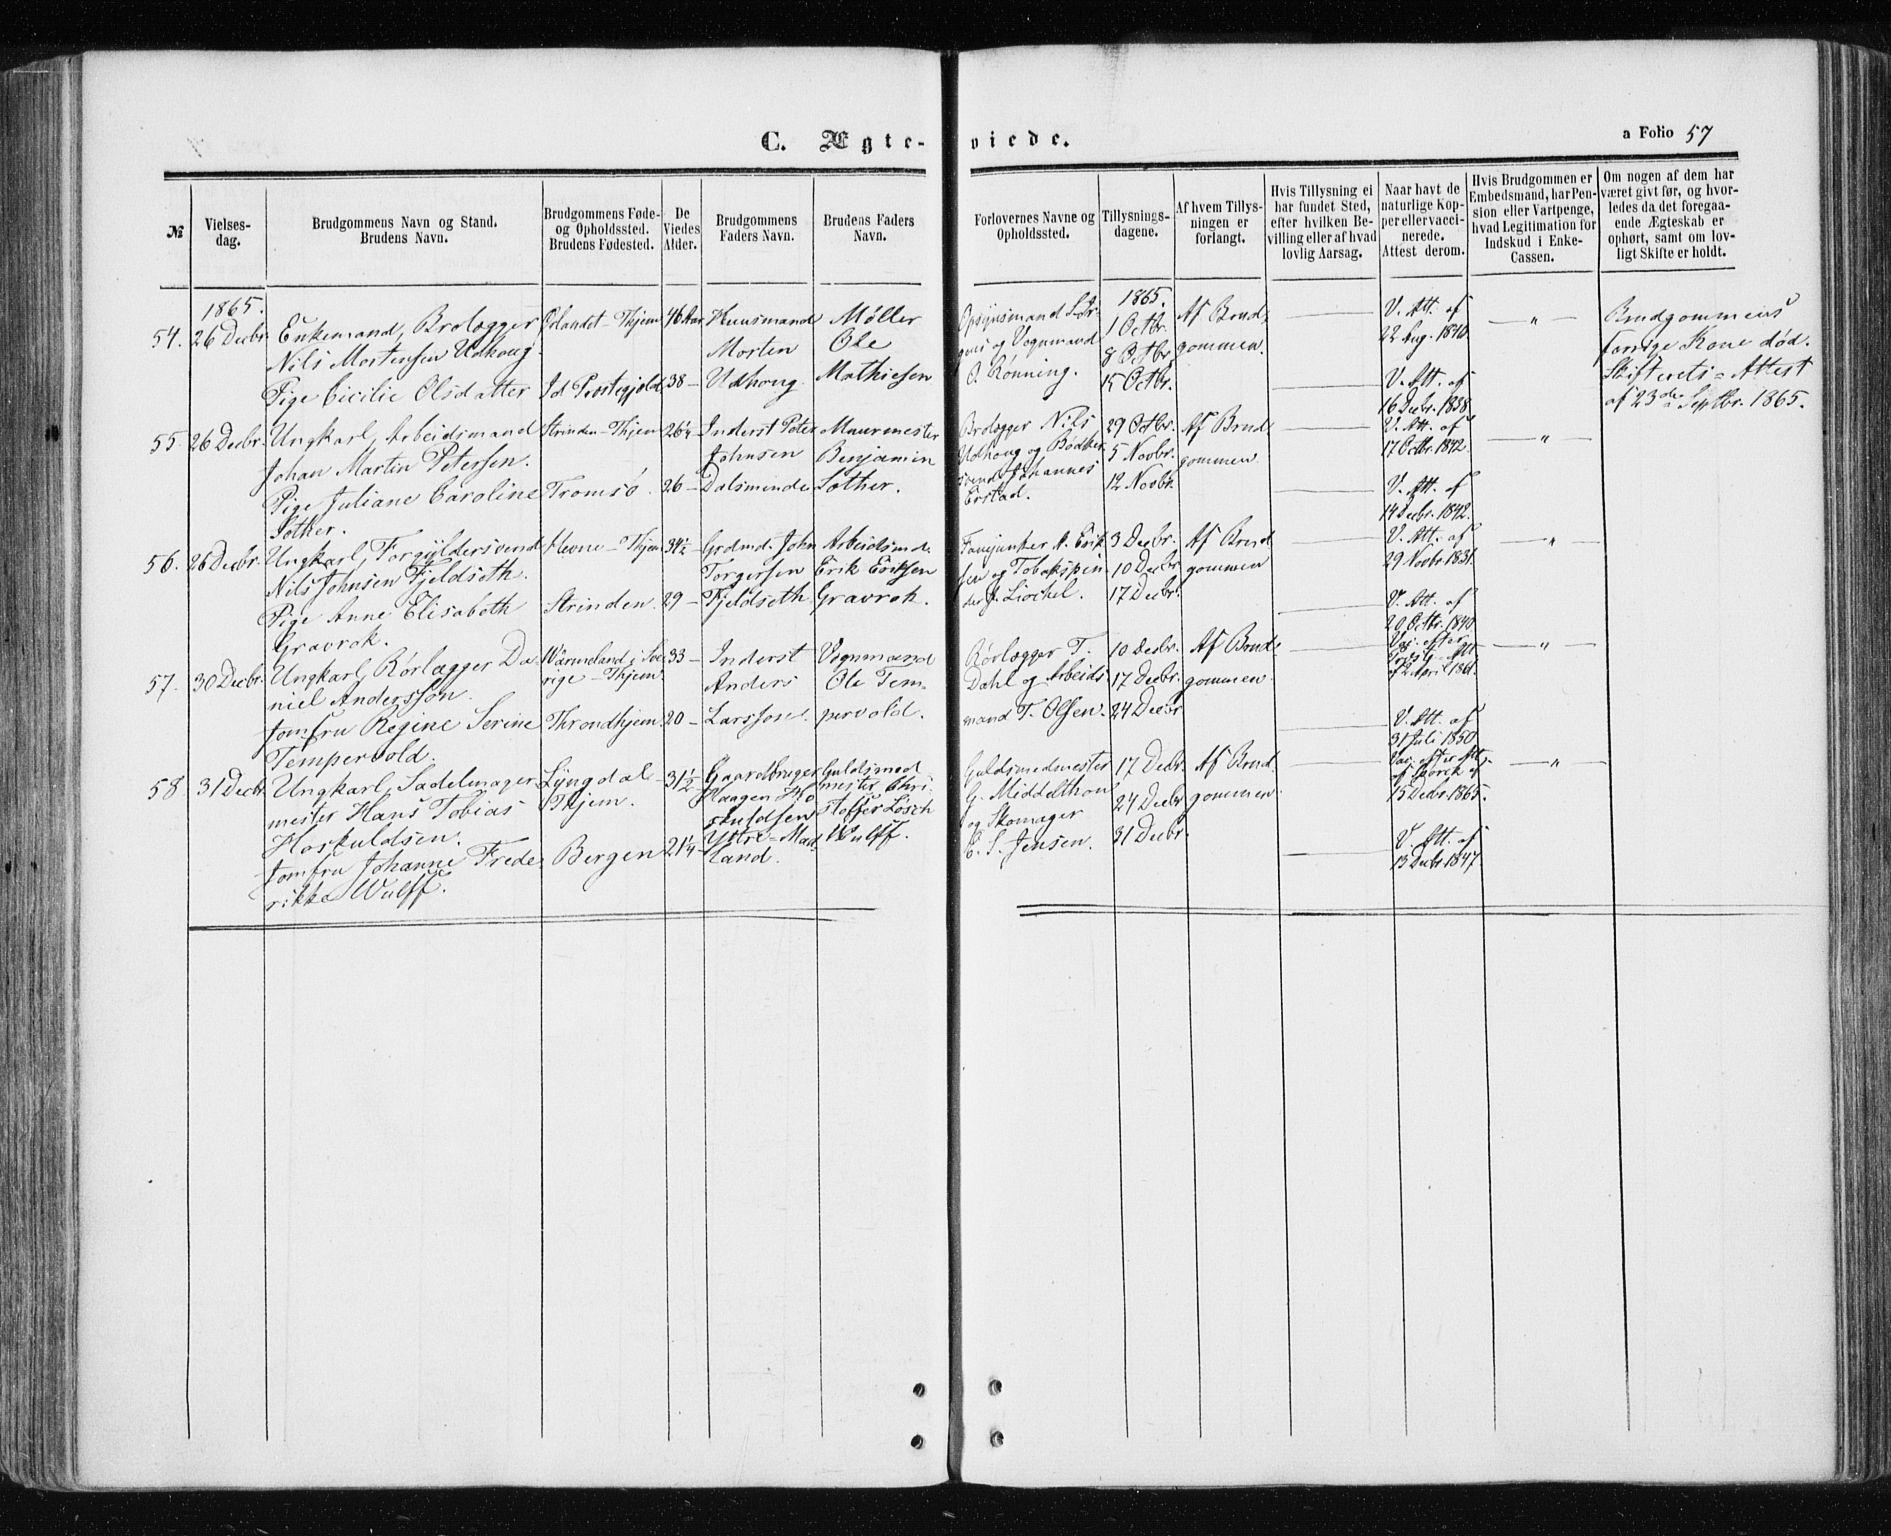 C. Ægte-viede.
a Folio 57
№
Vielses-
dag.
Brudgommens Navn og Stand.
Brudens Navn.
Brudgommens Føde-
og Opholdssted.
Brudens Fødested.
De
Viedes
Alder.
Brudgommens
Faders Navn.
Brudens Faders
Navn.
Forlovernes Navne og
Opholdssted.
Tillysnings-
dagene.
Af hvem Tillys-
ningen er
forlangt.
Hvis Tillysning ei
har fundet Sted,
efter hvilken Be-
villing eller af hvad
lovlig Aarsag.
Naar havt de
naturlige Kop-
per eller vacci-
nerede.
Attest derom.
Hvis Brudgommen er
Embedsmand, har Pen-
sion eller Vartpenge,
hvad Legitimation for
Indskud i Enke-
Cassen.
Om nogen af dem har
været givt før, og hvor-
ledes da det foregaa-
ende Ægteskab er
ophørt, samt om lov-
ligt Skifte er holdt.
1865.
54.
26 Decbr.
Enkemand, Brolægger
Nils Mortensen Udhoug.
Pige Cicilie Olsdatter
Ørlandet - Thjem
Id Præstegjeld
46 Aar
38 -
Huusmand
Morten
Udhoug
Møller
Ole
Mathiesen
Opsynsmand
og Vognmand
O. Rønning.
1865.
1 Octbr.
8 Octbr.
15 Octbr.
Af Brud-
gommen.
V. Att. af
22 Aug. 1840
V. Att. af
16 Decbr. 1838.
"
Brudgommens
forrige Kone død.
Skifterets-Attest
af 23de Septbr. 1865.
55.
26 Decbr.
Ungkarl, Arbeidsmand
Johan Martin Petersen.
Pige Juliane Caroline
Sother.
Strinden - Thjem
Tromsø.
26¼ -
26 -
Inderst Peter
Johnsen
Dalsminde
Muurmester
Benjamin
Sother.
Brolægger Nils
Udhoug og Bødker
svend Johannes
Erstad.
29 Octbr.
5 Novbr.
12 Novbr.
Af Brud
gommen
V. Att. af
17 Octbr. 1842.
V. Att. af
14 Decbr. 1842.
"
56.
26 Decbr.
Ungkarl, Forgyldersvend
Nils Johnsen Fjeldseth.
Pige Anne Elisabeth
Gravrok.
Hevne - Thjem
Strinden.
34½ -
29 -
Grdmd. John
Torgersen
Fjeldseth
Arbeidsmd.
Erik Eriksen
Gravrok.
Fanejunker A. Erik
sen og Tobakspin
der J. Liochel.
3 Decbr.
10 Decbr
17 Decbr.
Af Brud
gommen
V. Att. af
29 Novbr. 1831.
V. Att. af
20 Octbr. 1840
"
57.
30 Decbr.
Ungkarl, Rørlægger Da
niel Andersson.
Jomfru Regine Serine
Tempervold.
Wärmeland i Sve
rige - Thjem
Throndhjem.
33 -
20 -
Inderst
Anders
Larsson.
Vognmand
Ole Tem
pervold.
Rørlægger T.
Dahl og Arbeids
mand T. Olsen.
10 Decbr.
17 Decbr.
24 Decbr
Af Brud-
gommen
af 2 April 1861.
V. Att. af
31 Juli 1850
"
58
31 Decbr
Ungkarl, Sadelmager
mester Hans Tobias
Hoskuldsen.
Jomfru Johanne Frede
rikke Wulff.
Lyngdal -
Thjem.
Bergen
31½ -
21¼ -
Gaardbruger
Haagen Ho
skuldsen
Yttre-Mad
land.
Guldsmed
mester Chri
stoffer Løsch
Wulff.
Guldsmedmester
G. Middelthon
og Skomager
C. S. Jensen.
17 Decbr.
24 Decbr
31 Decbr
Af Brud
gommen
15 Decbr. 1865.
V. Att. af
13 Decbr. 1847
"